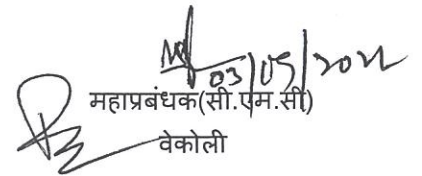 03/05/2022
महाप्रबंधक(सी.एम.सी)
वेकोली